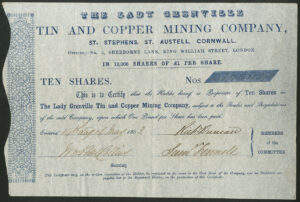 THE LADY GRENVILLE
TIN AND COPPER MINING COMPANY,
ST. STEPHENS, ST. AUSTELL, CORNWALL.
OFFICES: No. 4, SHERBORNE LANE, KING WILLIAM STREET, LONDON.
IN 12,000 SHARES OF £1 PER SHARE.
TEN SHARES. Nos
This is to Certify that the Holder hereof is Proprietor of Ten Shares in
The Lady Grenville Tin and Copper Mining Company, subject to the Rules and Regulations
of the said Company, upon which One Pound per Share has been paid.
Richd Duncan
MEMBERS
of the
COMMITTEE
Sam Fennell
Secretary